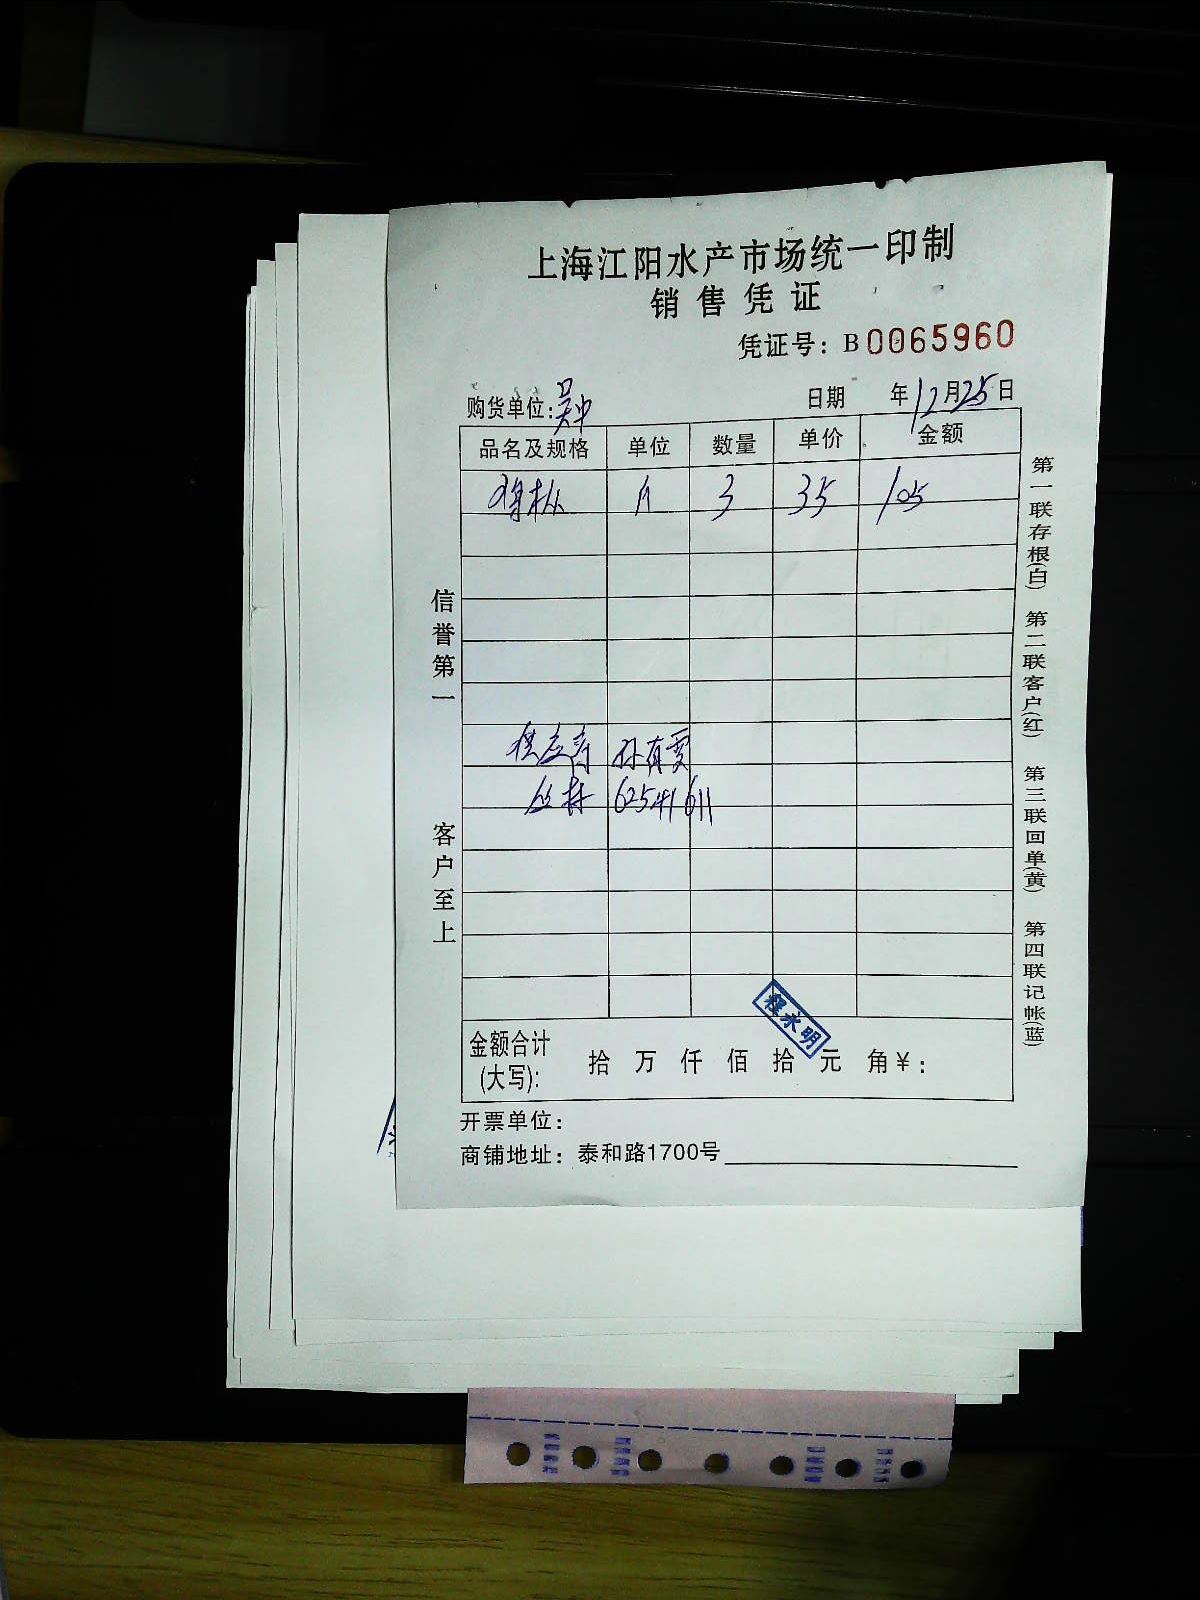 上海江阳水产市场统一印制
销售凭证
凭证号：B0065960
购货单位：吴中 日期 年12月25日
品名及规格 单位 数量 单价 金额
3 35 105
供应商 孙有雯
62541611
信誉第一
客户至上
第一联存根(白) 第二联客户(红) 第三联回单(黄) 第四联记帐(蓝)
程永明
金额合计(大写): 拾 万 仟 佰 拾 元 角 ¥:
开票单位：
商铺地址：泰和路1700号